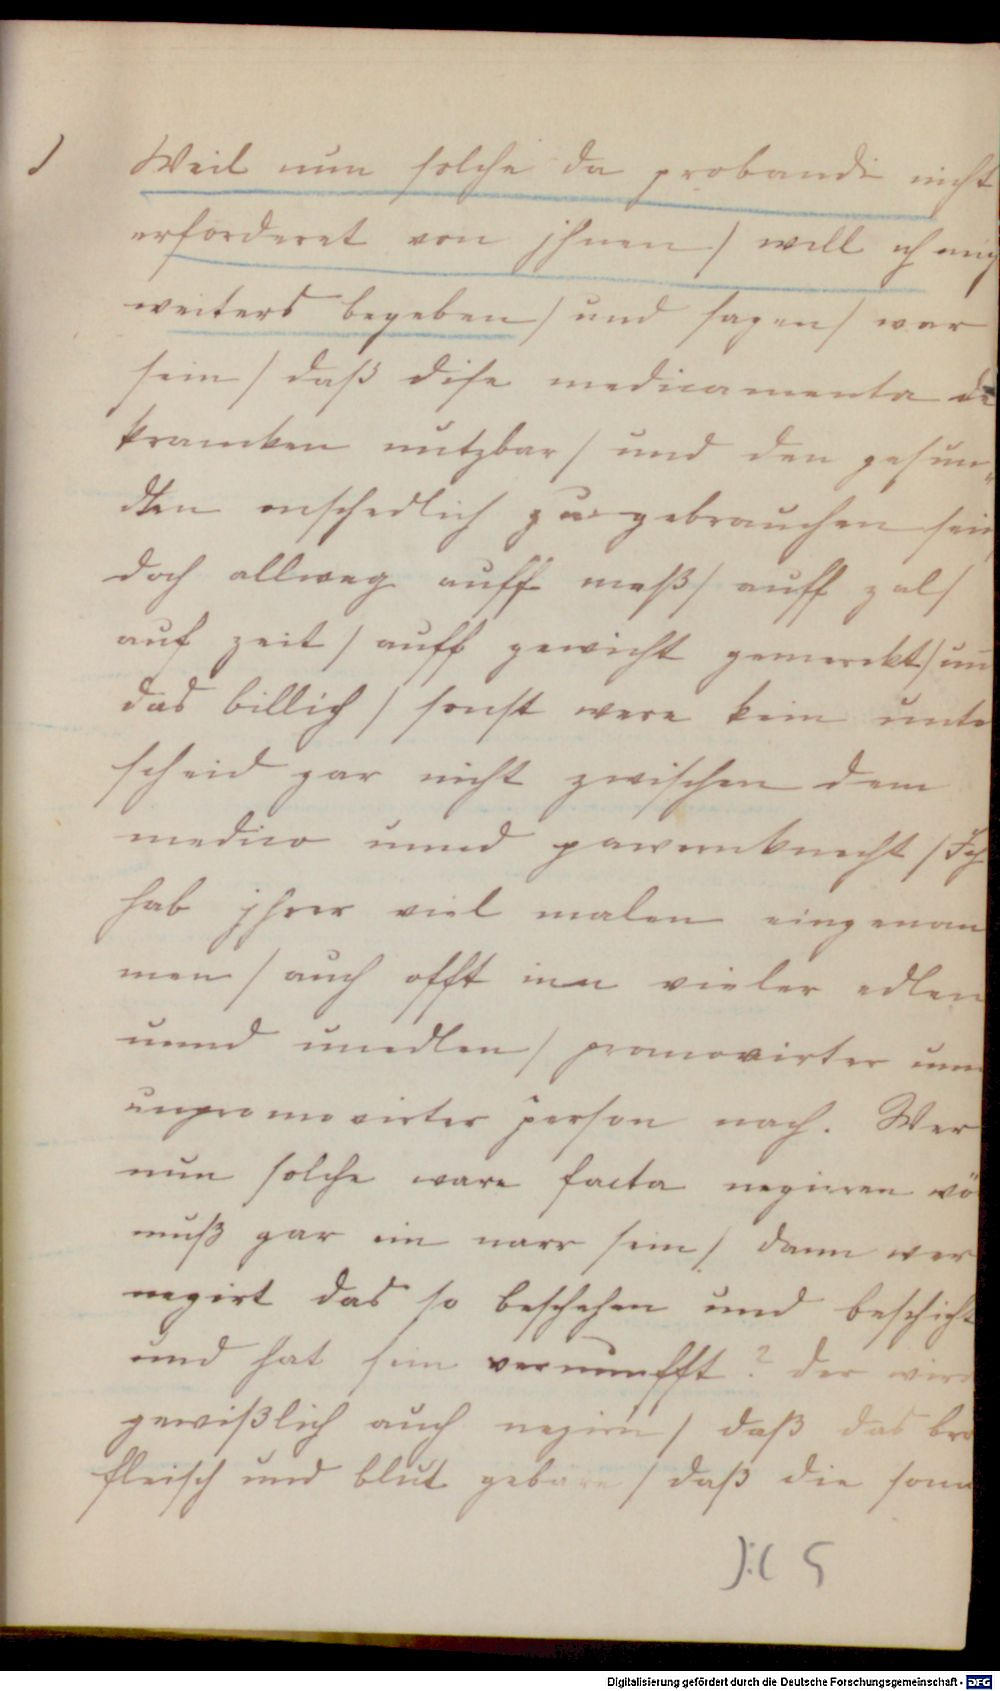 Weil nun solche da probandi nicht
erforderet von jhnen / will ich mich
weiters begeben / und sagen / war
sein / daß dise medicamenta de
krancken nutzbar / und den gesun-
dten onschedlich zu gebrauchen sein
doch allweg auff meß / auff zal /
auf zeit / auff gewicht gemerckt / un
das billich / sonst were kein unter
scheid gar nicht zwischen dem
medico unnd pawernknecht / Ich
hab jhrer viel malen eingenom
men / auch offt inn vieler edlen
unnd unedlen / promovirter unn
unpromovirter person nach. Wer
nun solche ware facta negieren wö
muß gar ein narr sein / dann wer
negirt das so beschehen und beschicht
und hat sein vernunfft? der wird
gewißlich auch negirn / daß das bro
fleisch und blut gebäre / daß die sonn
):( 5
Digitalisierung gefördert durch die Deutsche Forschungsgemeinschaft - DFG